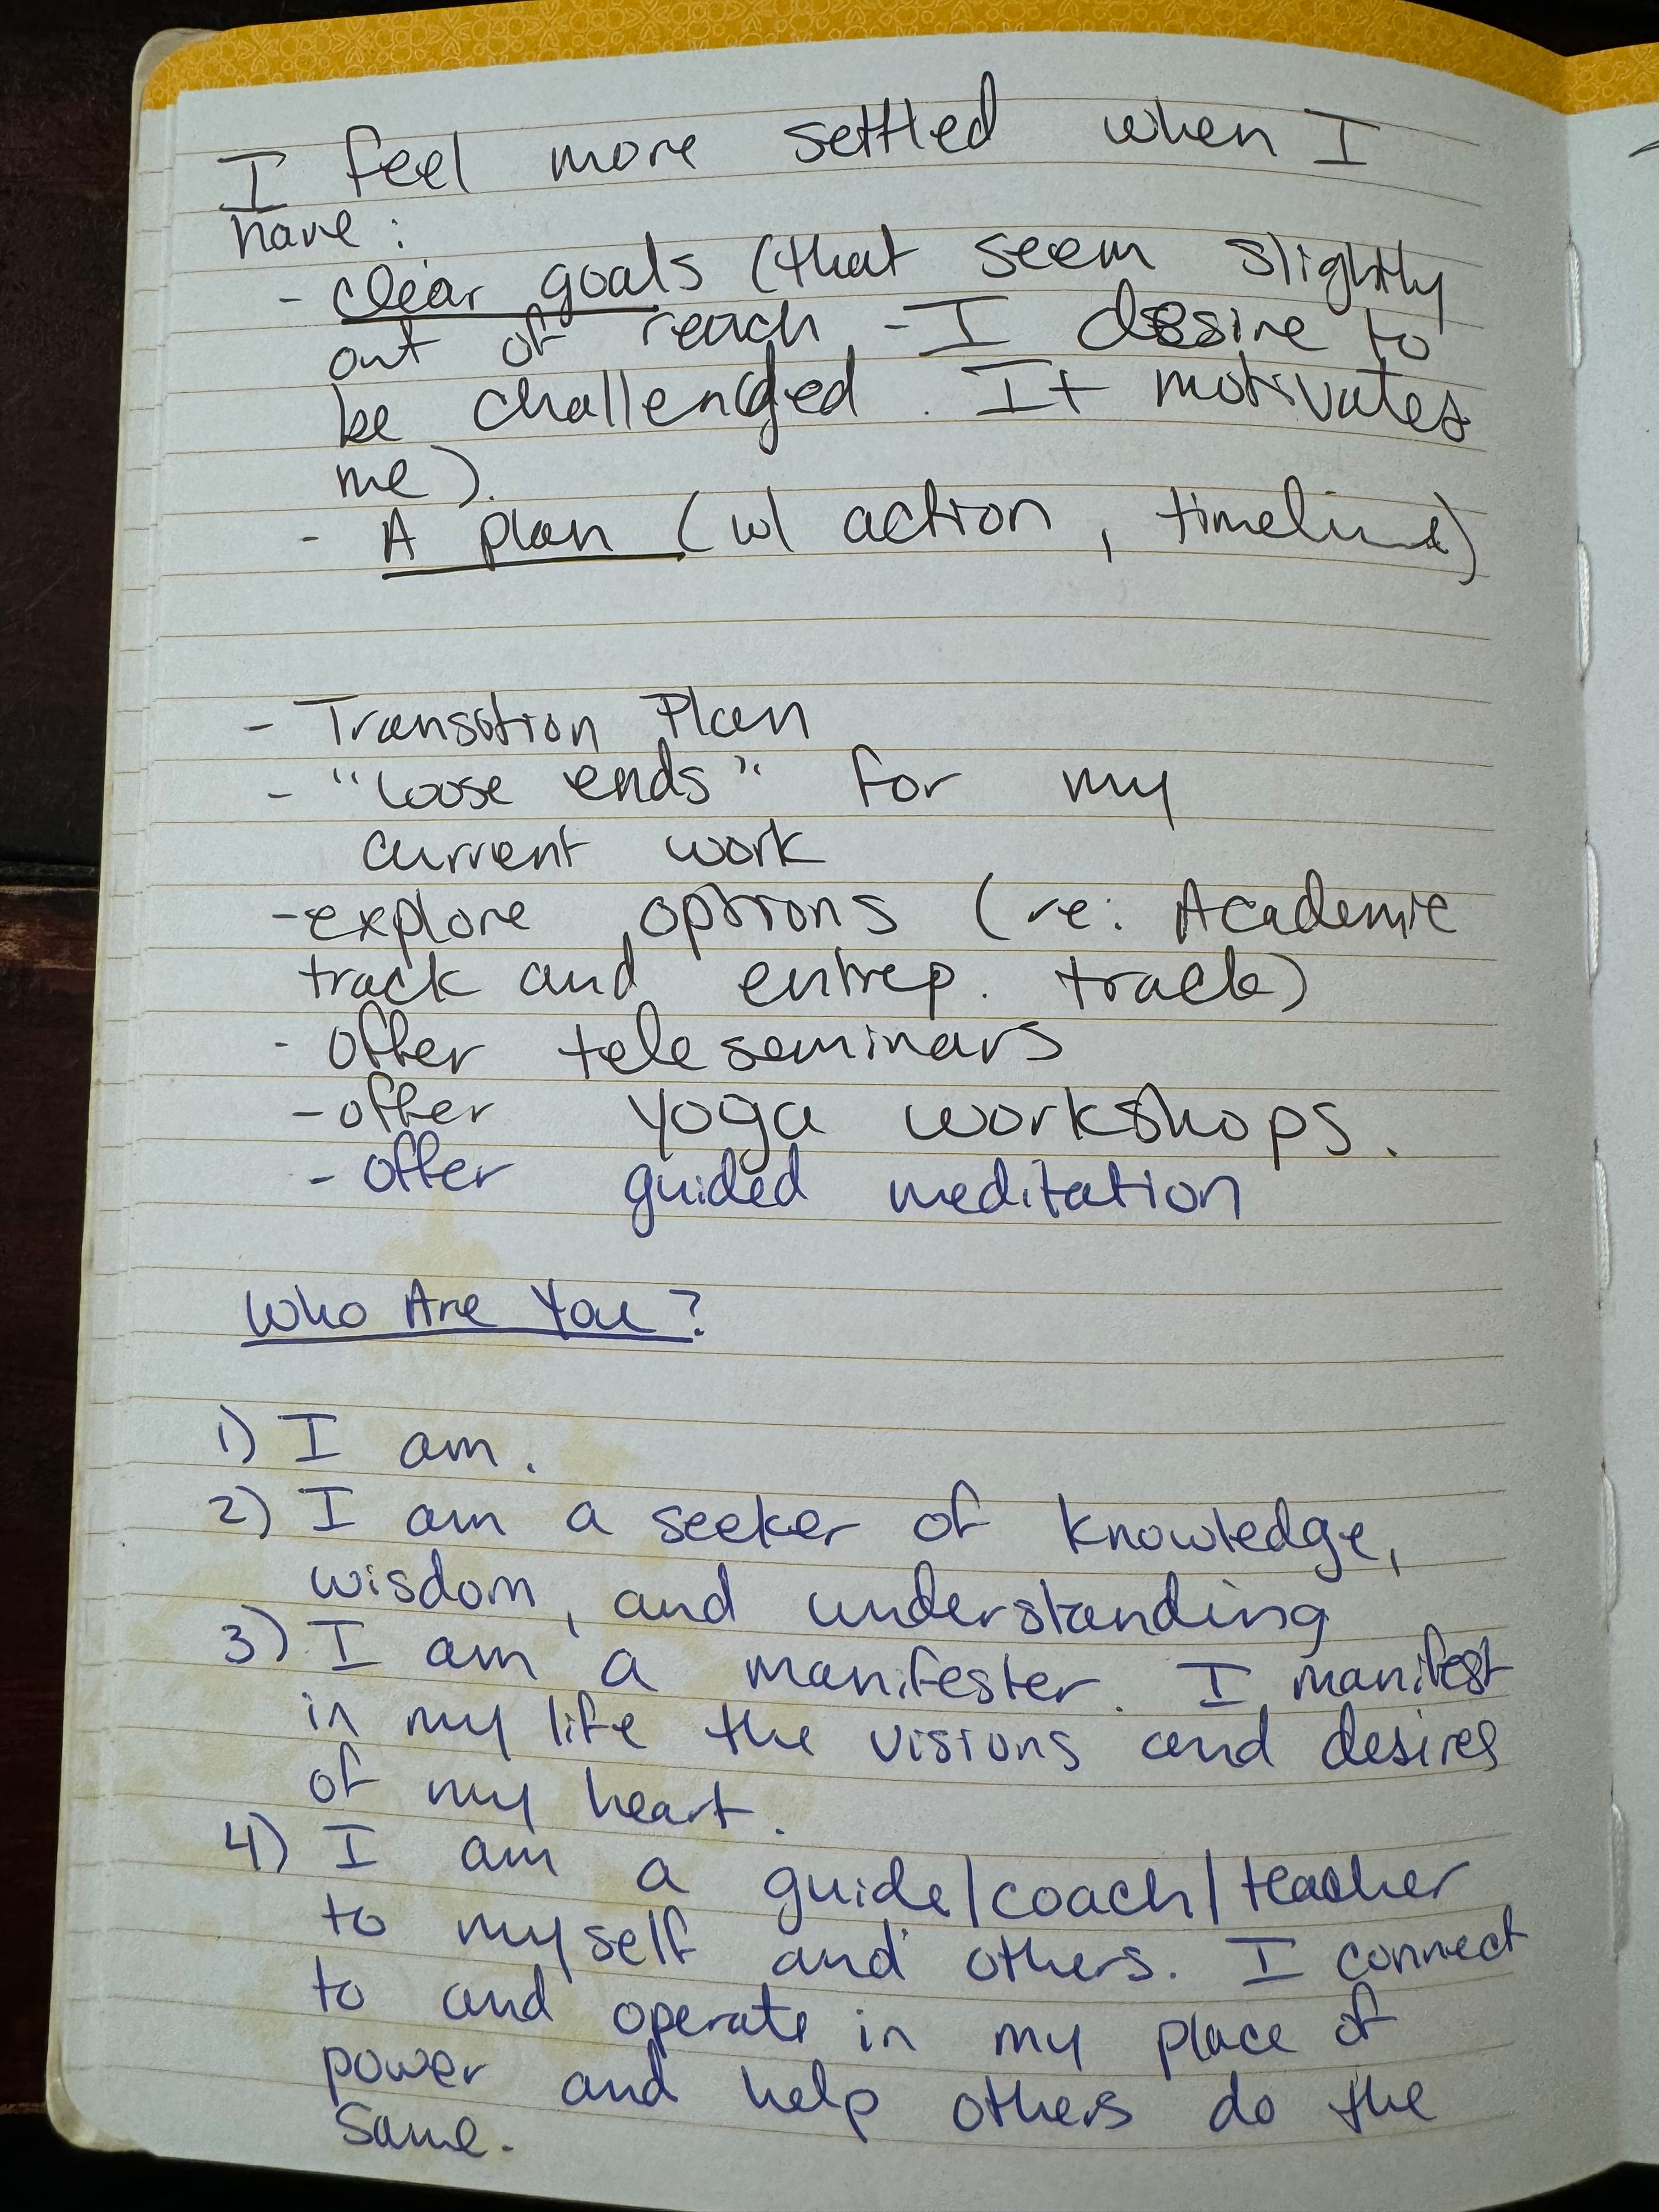 I feel more settled when I
have:
- clear goals (that seem slightly
out of reach - I desire to
be challenged. It motivates
me).
- A plan (w/ action, timeline)
- Transition Plan
- "loose ends" for my
current work
- explore options (re: Academic
track and entrep. track)
- offer teleseminars
- offer yoga workshops.
- offer guided meditation
Who Are You?
1) I am.
2) I am a seeker of knowledge,
wisdom, and understanding
3) I am a manifester. I manifest
in my life the visions and desires
of my heart.
4) I am a guide/coach/teacher
to myself and others. I connect
to and operate in my place of
power and help others do the
same.